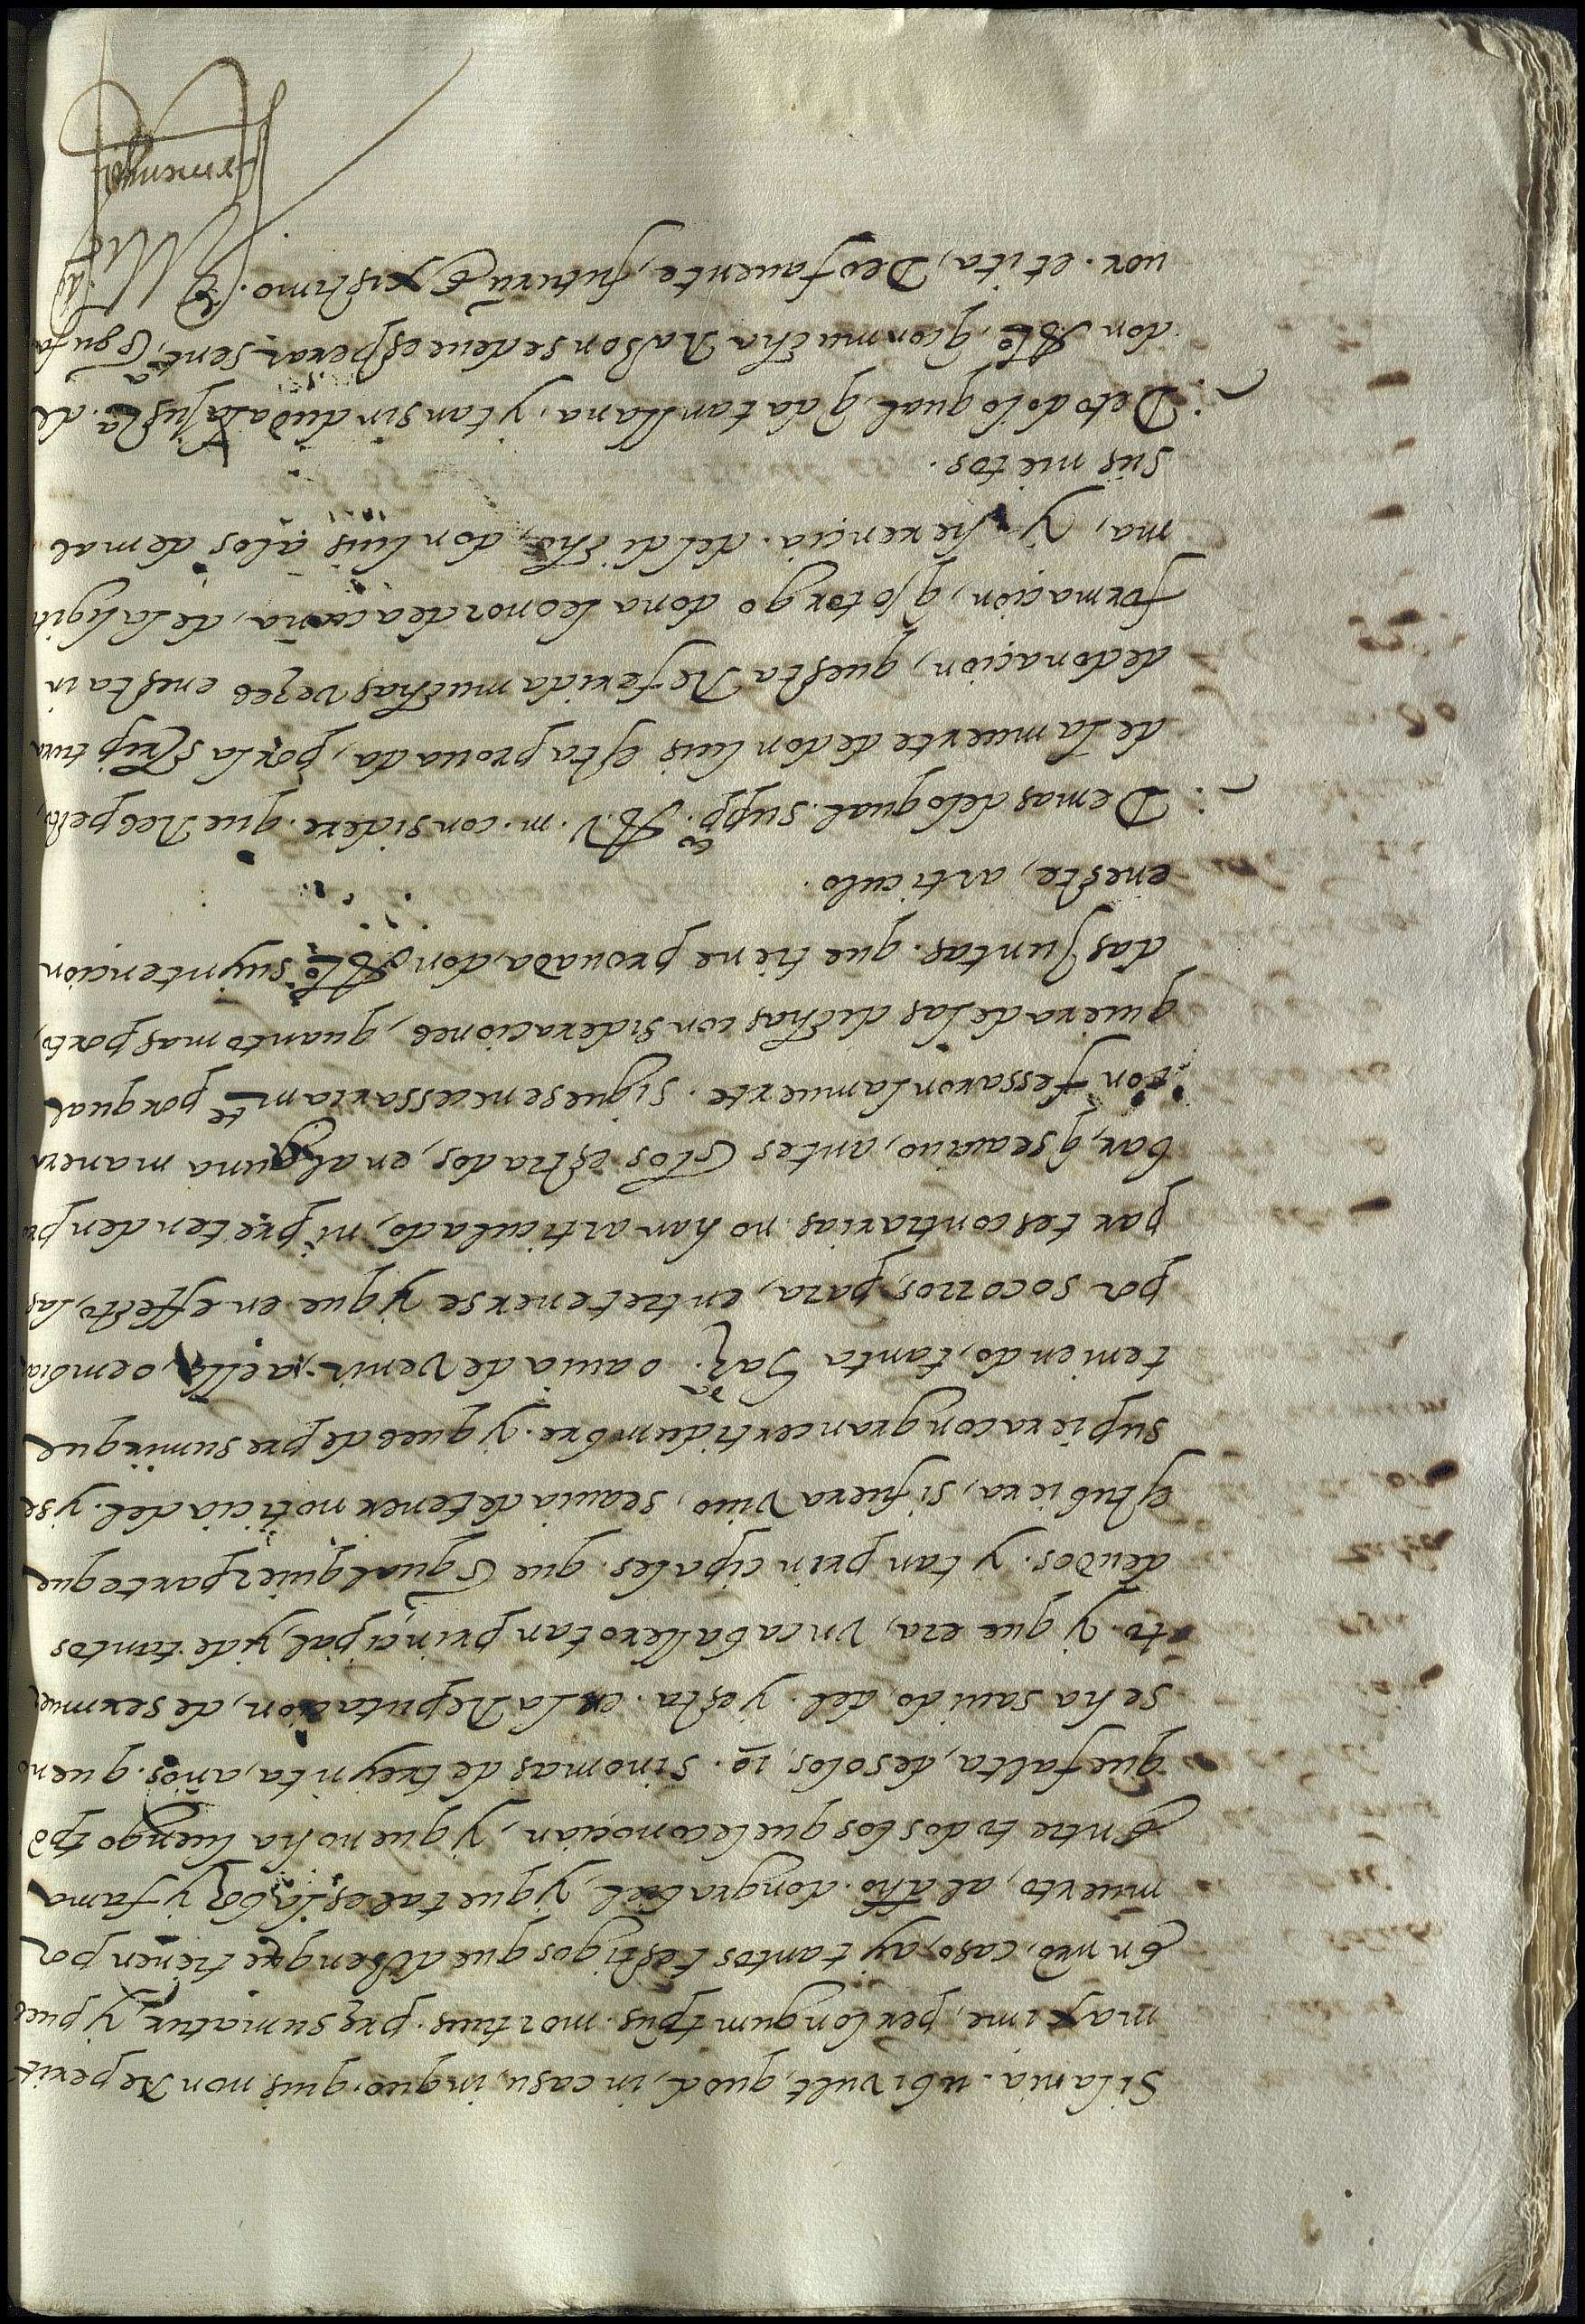 Silania. ubi vult, quod, in casu, in quo, quis, non Reperit
maxime, per longum tp̄us. mortuus. pręsumatur, y pues
En nr̄o, caso, ay tantos testigos que disen que tienen por
muerto, al dho. don grabiel, y que tal es la boz y fama
Entre todos los que le conoçian, y que no ha luengo tp̄o
que falta, de solos, 10. sino mas de treynta, años. que no
se ha sauido, del. y esta. en la Reputaçion, de ser muer
to. y que era, vn caballero tan principal, y de tantos
deudos. y tan principales. que En qualquier parte que
estubiera, si fuera viuo, se auia de tener noticia del. y se
supiera con gran certidumbre. y que es de presumir que
teniendo, tanta haz.da o auia de venir, a ella, o embiar
por socorros, para, entretenerse y que en effecto, las
partes contrarias, no han articulado, ni pretenden pro
bar, q̄ sea viuo, antes En los estrados, en alguna manera
confessaron la muerte. siguese necessariam.te por qual
quiera de las dichas consideraciones, quanto mas por to,
das Juntas. que tiene prouada, don Al.o su yntencion
en este, articulo.
Demas de lo qual. supp.co A. V. m. considere. que Respeto,
de la muerte de don luis esta prouada, por la escriptura
de donaçion, que esta Referida muchas vezes en esta in
formaçion, q̄ otorgo doña leonor de acuña, de la legiti
ma, y herencia. del dicho, don luis a los demas
sus nietos.
De todo lo qual. q̄da tan llana, y tan sin duda la just.a de
don Al.o, q̄ con mucha Rason se deue esperar sent.a, En su fa
uor. et ita, Deo fauente, futurū Existimo.
Armengol